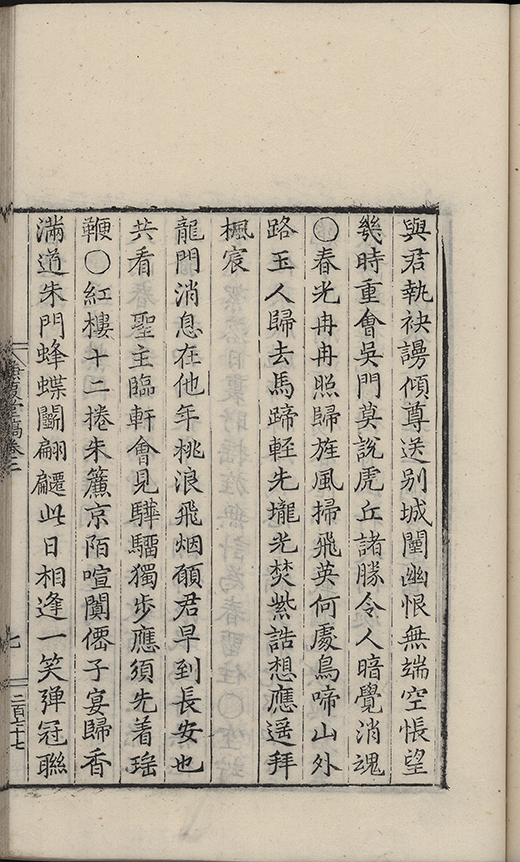 與君執袂謾傾尊送别城闉幽恨無端空悵望
幾時重會吳門莫說虎丘諸勝令人暗覺消魂
〇春光冉冉照歸旌風掃飛英何處鳥啼山外
路玉人歸去馬蹄輕先壠光焚紫誥想應遥拜
楓宸
龍門消息在他年桃浪飛烟願君早到長安也
共看春聖主臨軒會見驊騮獨步應須先着瑤
鞭〇紅樓十二捲朱簾京陌喧闐儒子宴歸香
滿道朱門蜂蝶鬭翩䙴此日相逢一笑彈冠聯
堂稿卷二
七
二百七十七